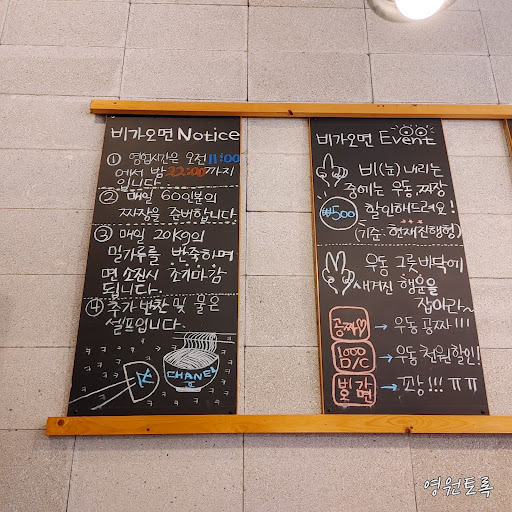 비가오면 Notice
① 영업시간은 오전 11:00
에서 밤 22:00까지
입니다.
② 매일 60인분의
짜장을 준비합니다.
③ 매일 20kg의
밀가루를 반죽하며
면 소진시 조기마감
됩니다.
④ 추가 반찬 및 물은
셀프입니다.
CHANEL
비가오면 Event
비(눈) 내리는
중에는 우동 짜장
₩500 할인해드려요!
(기준: 현재진행형)
우동 그릇 바닥에
새겨진 행운을
잡아라~
공짜♡ → 우동 공짜!!!
1000 D/C → 우동 천원할인!
빛감 → 꽝!!! ㅠㅠ
영원토록